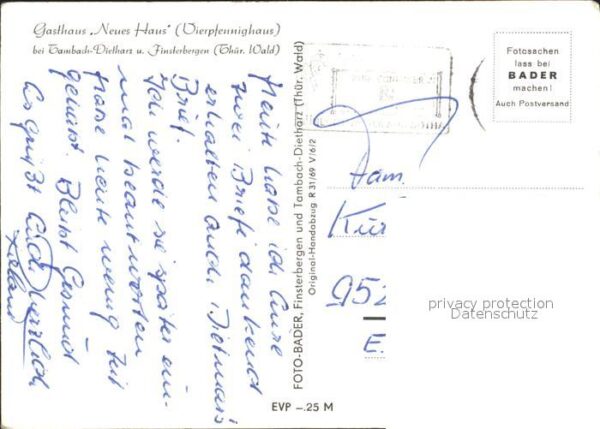 Gasthaus „Neues Haus" (Vierpfennighaus)
bei Tambach-Dietharz u. Finsterbergen (Thür. Wald)
Heute habe ich Eure
zwei Briefe dankend
erhalten auch Dietmars
Brief.
Ich werde sie später ein-
mal beantworten
habe heute wenig Zeit
gehabt. Bleibt Gesund
es grüßt Euch herzlich
FOTO-BADER, Finsterbergen und Tambach-Dietharz (Thür. Wald)
Original-Handabzug R 31/69 V/6/2
EVP –.25 M
Fotosachen
lass bei
BADER
machen!
Auch Postversand
Fam.
Kür
952
E.
privacy protection
Datenschutz